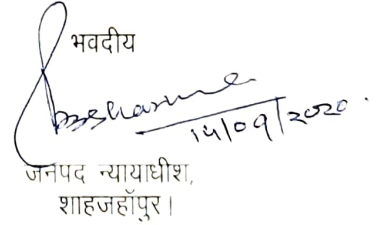 भवदीय
14/09/2020.
जनपद न्यायाधीश,
शाहजहॉपुर।